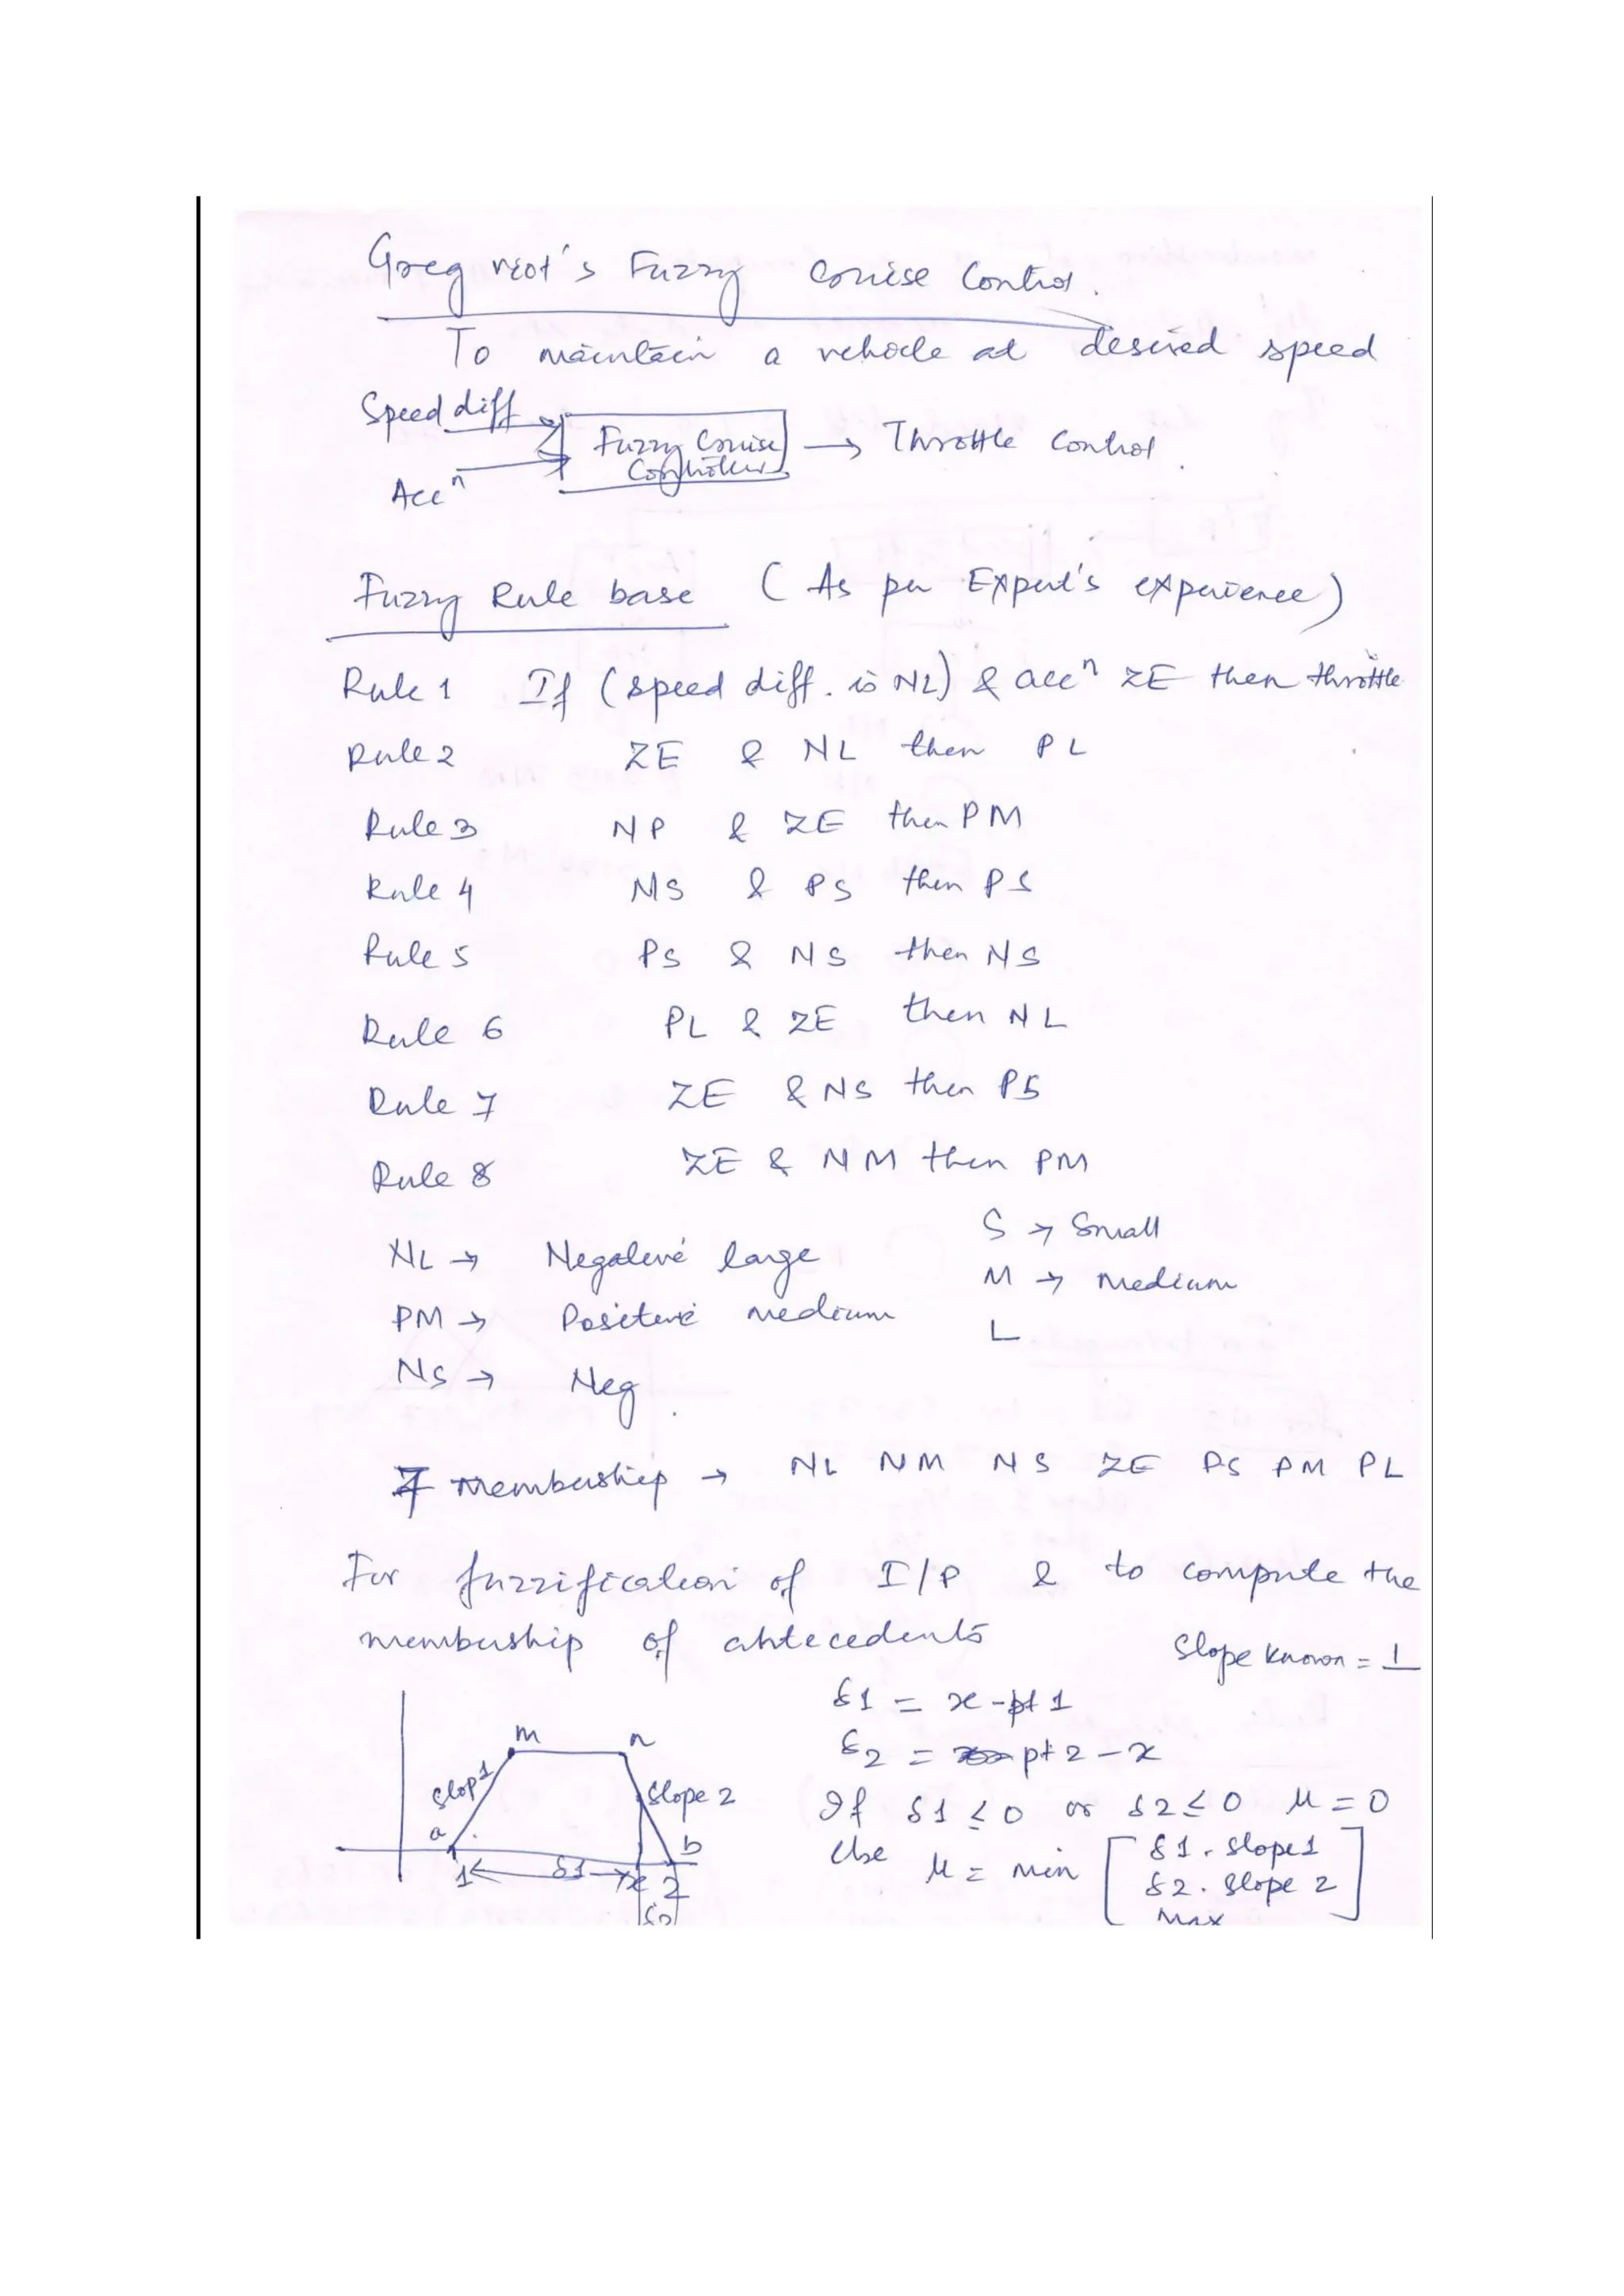 Greg viot's Fuzzy Cruise Control.
To maintain a vehicle at desired speed
Speed diff
Fuzzy Cruise → Throttle Control.
Controller
Accⁿ
Fuzzy Rule base (As per Expert's experience)
Rule 1 If (speed diff. is NL) & accⁿ ZE then throttle
Rule 2 ZE & NL then PL
Rule 3 NP & ZE then PM
Rule 4 NS & PS then PS
Rule 5 PS & NS then NS
Rule 6 PL & ZE then NL
Rule 7 ZE & NS then PS
Rule 8 ZE & NM then PM
S → Small
NL → Negative large
M → Medium
PM → Positive medium
L
NS → Neg.
7 membership → NL NM NS ZE PS PM PL
For fuzzification of I/P & to compute the
membership of antecedents
Slope known = 1
δ1 = x - pt 1
m n
δ2 = pt 2 - x
slop 1 slope 2
If δ1 ≤ 0 or δ2 ≤ 0 μ = 0
a b
else μ = min [ δ1 . slope1
δ2 . slope 2
max ]
1 δ1 x 2
δ2